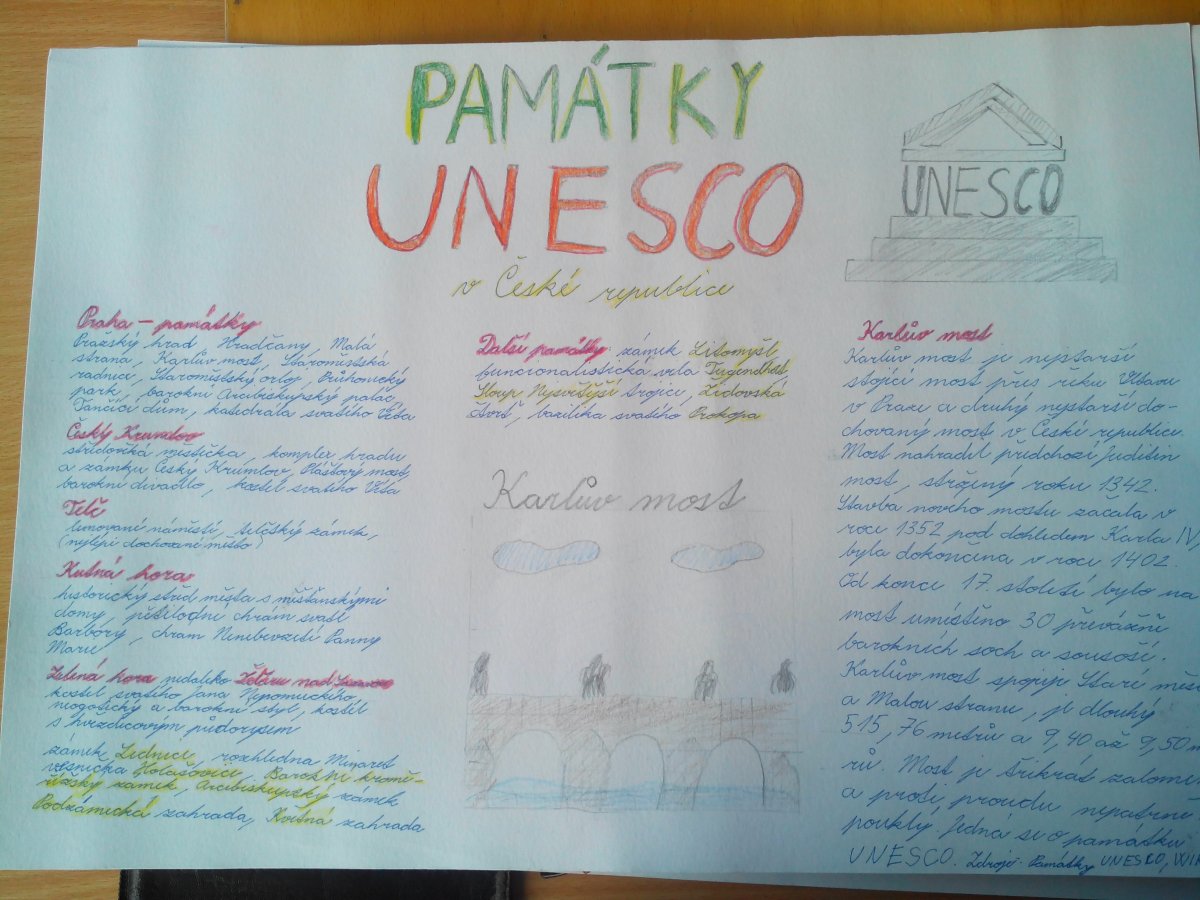 PAMÁTKY
UNESCO
v České republice
UNESCO
Praha – památky
Pražský hrad, Hradčany, Malá
strana, Karlův most, Staroměstská
radnice, Staroměstský orloj, Průhonický
park, barokní Arcibiskupský palác,
Tančící dům, katedrála svatého Víta
Český Krumlov
středověká městečka, komplex hradu
a zámku Český Krumlov, Plášťový most,
barokní divadlo, kostel svatého Víta
Telč
renesanční náměstí, telčský zámek,
(nejlépe dochované město)
Kutná hora
historický střed města s měšťanskými
domy, pětilodní chrám svaté
Barbory, chrám Nanebevzetí Panny
Marie
Zelená hora nedaleko Žďáru nad Sázavou
kostel svatého Jana Nepomuckého
neogotický a barokní styl, kostel
s hvězdicovým půdorysem
zámek Lednice, rozhledna Minaret
vesnička Holašovice, Barokní kromě-
řížský zámek, Arcibiskupský zámek
Podzámecká zahrada, Květná zahrada
Další památky zámek Litomyšl,
funcionalistická vila Tugendhat,
Sloup Nejsvětější trojice, Židovská
čtvrť, bazilika svatého Prokopa
Karlův most
Karlův most
Karlův most je nejstarší
stojící most přes řeku Vltavu
v Praze a druhý nejstarší do-
chovaný most v České republice.
Most nahradil předchozí Juditin
most, stržený roku 1342.
Stavba nového mostu začala v
roce 1352 pod dohledem Karla IV,
byla dokončena v roce 1402.
Od konce 17. století bylo na
most umístěno 30 převážně
barokních soch a sousoší.
Karlův most spojuje Staré měs
a Malou stranu, je dlouhý
515,76 metrů a 9,40 až 9,50 m
rů. Most je třikrát zalome
a proti proudu nepatrně
pouklý. Jedná se o památku
UNESCO. Zdroje: Památky UNESCO, WIK